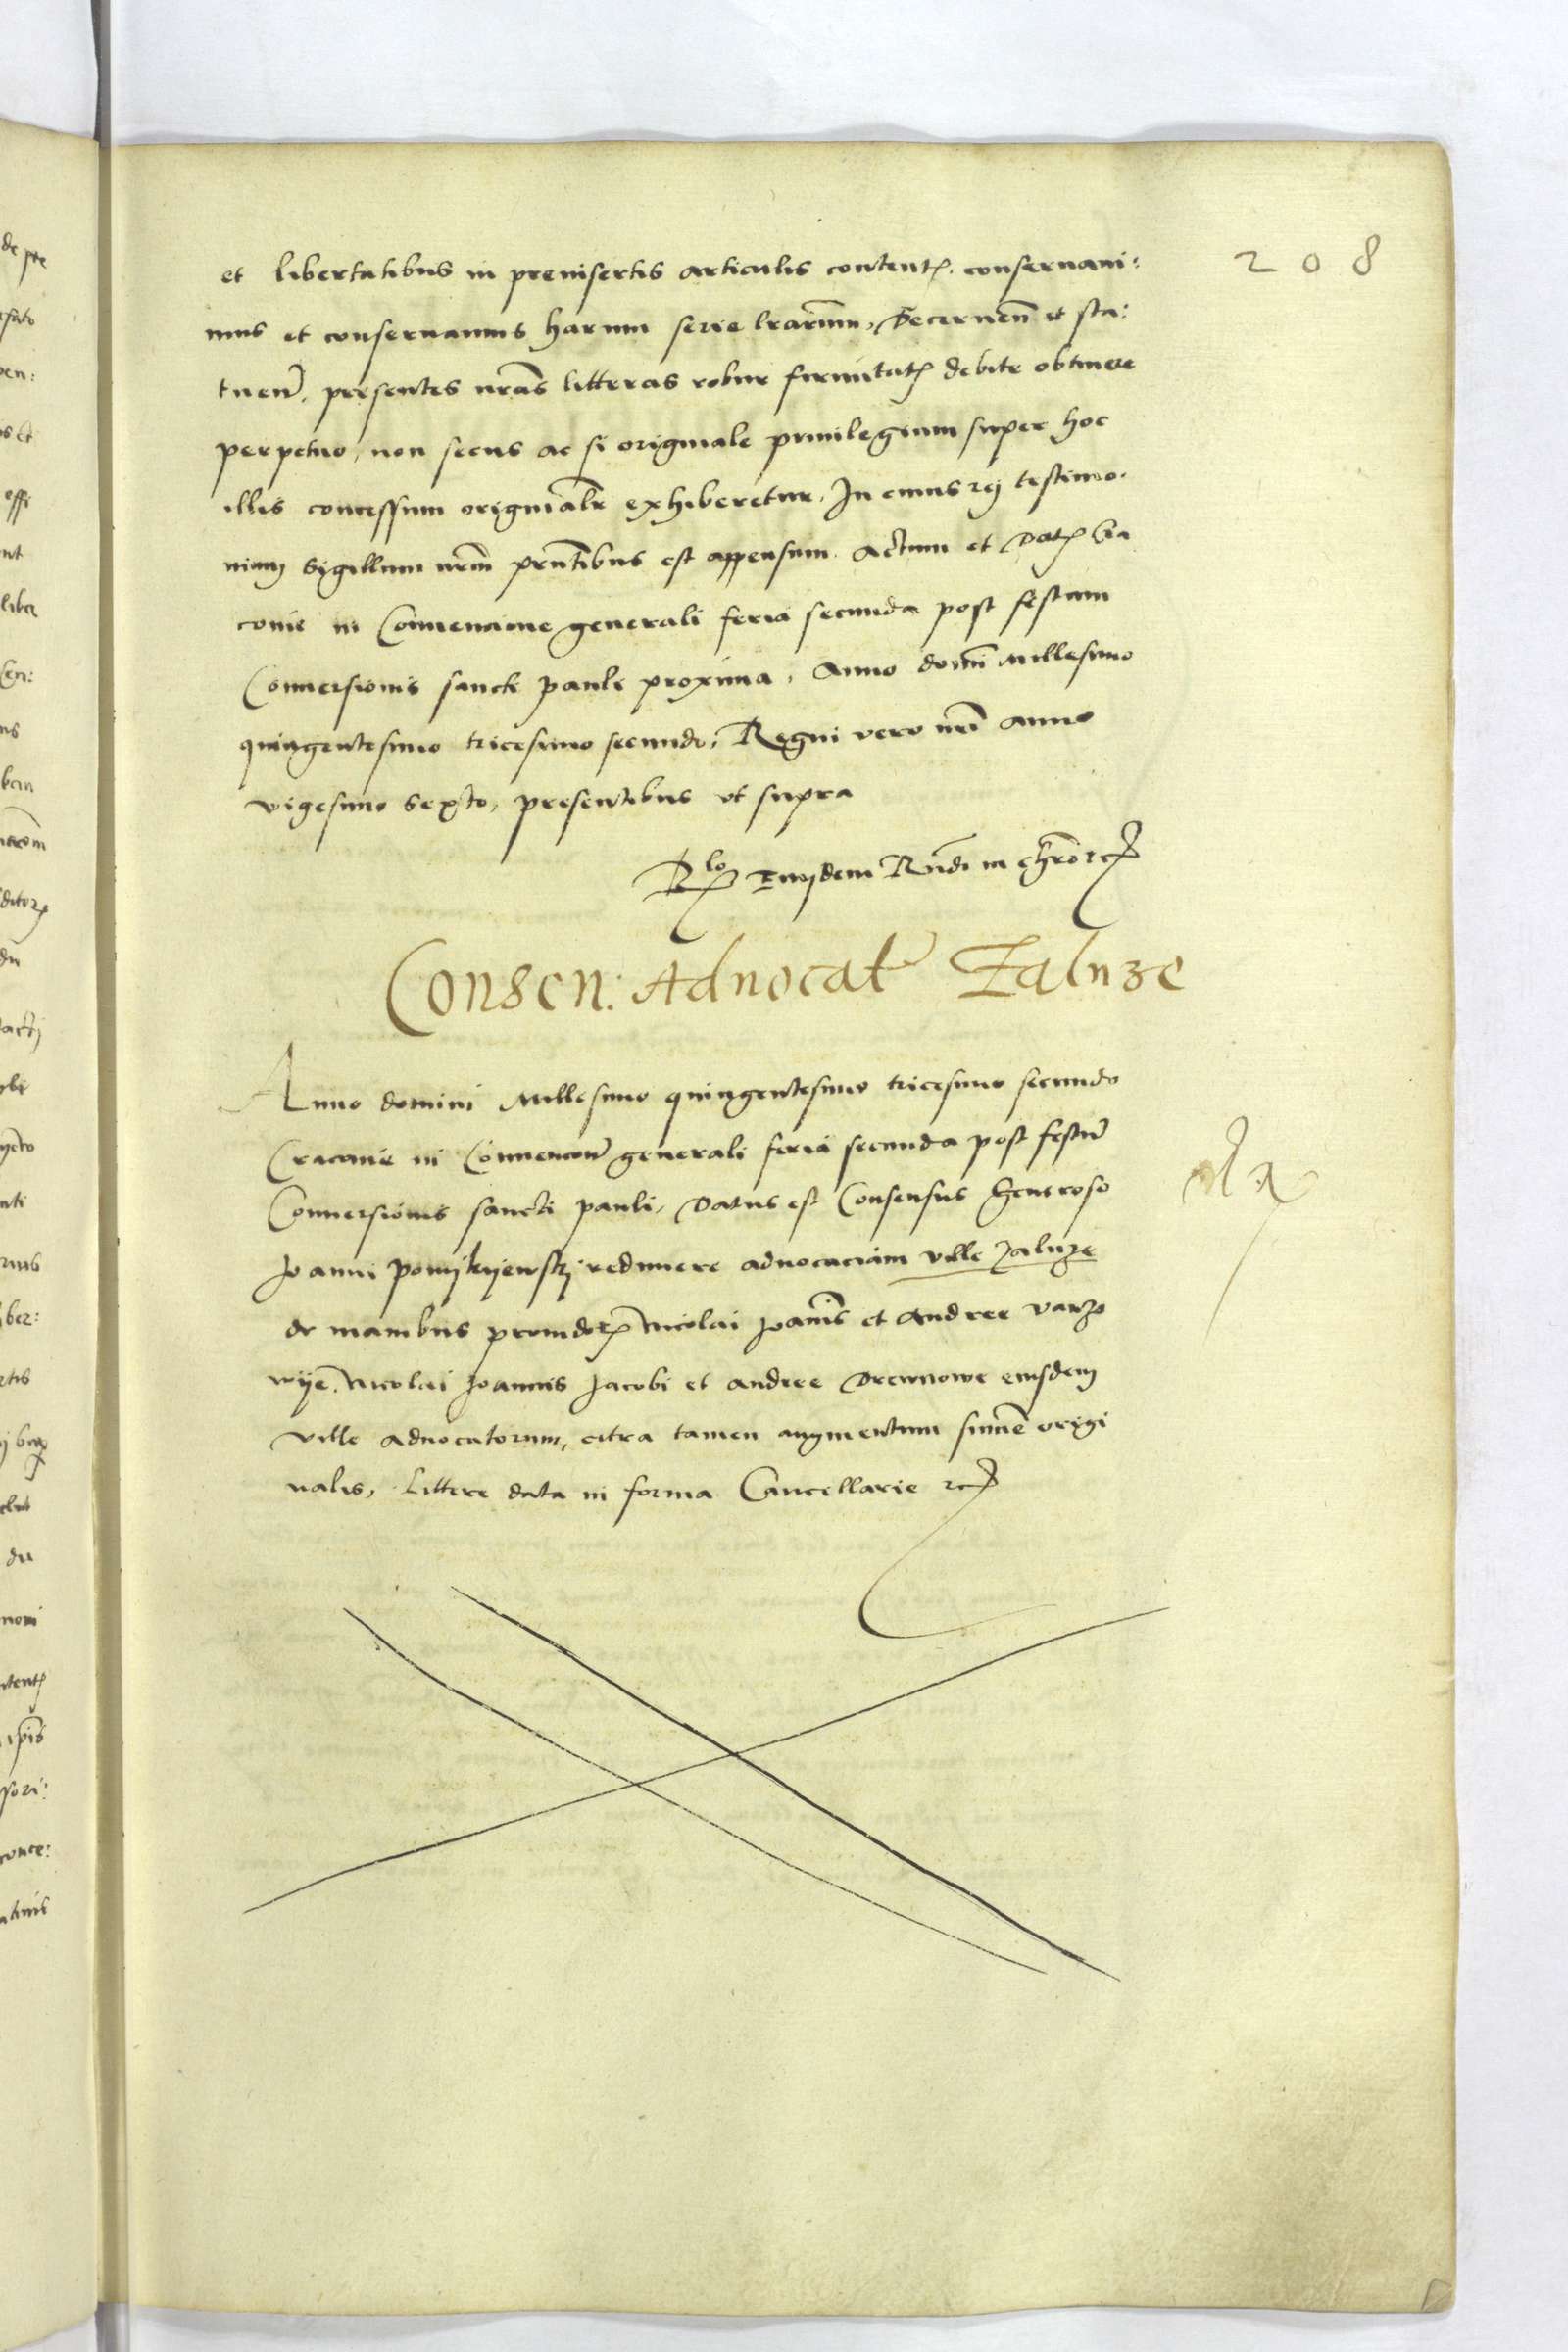 208
et libertatibus in preinsertis articulis content. conseruaui:
mus et conseruamus harum serie lrarum, Decernen et sta:
tuen, presentes nras litteras robur firmitatis debite obtinere
perpetuo, non secus ac si originale priuilegium super hoc
illis concessum originalr exhiberetur, In cuius rej testimo.
nium Sigillum nrm pntibus est appensum. Actum et Dat Cra
couie in Conuencione generali feria secunda post festum
Conuersionis sancti pauli proxima, Anno domi Millesimo
quingentesimo tricesimo secundo, Regni vero nri anno
vigesimo sexto, presentibus vt supra
Rlo Eiusdem Rndi in chro etc
Consen: Aduocat Zaluze
Anno domini Millesimo quingentesimo tricesimo secundo
Cracouie in Conuencon generali feria secunda post festum
Conuersionis sancti pauli, Datus est Consensus Generoso
Joanni redimere aduocaciam ville Zaluze
de manibus prouidor Nicolai Joanis et Andree Varzo
wye. Nicolai Joannis Jacobi et andree Drewnowe eiusdem
ville aduocatorum, citra tamen augmentum summe origi
nalis, littere data in forma Cancellarie etc